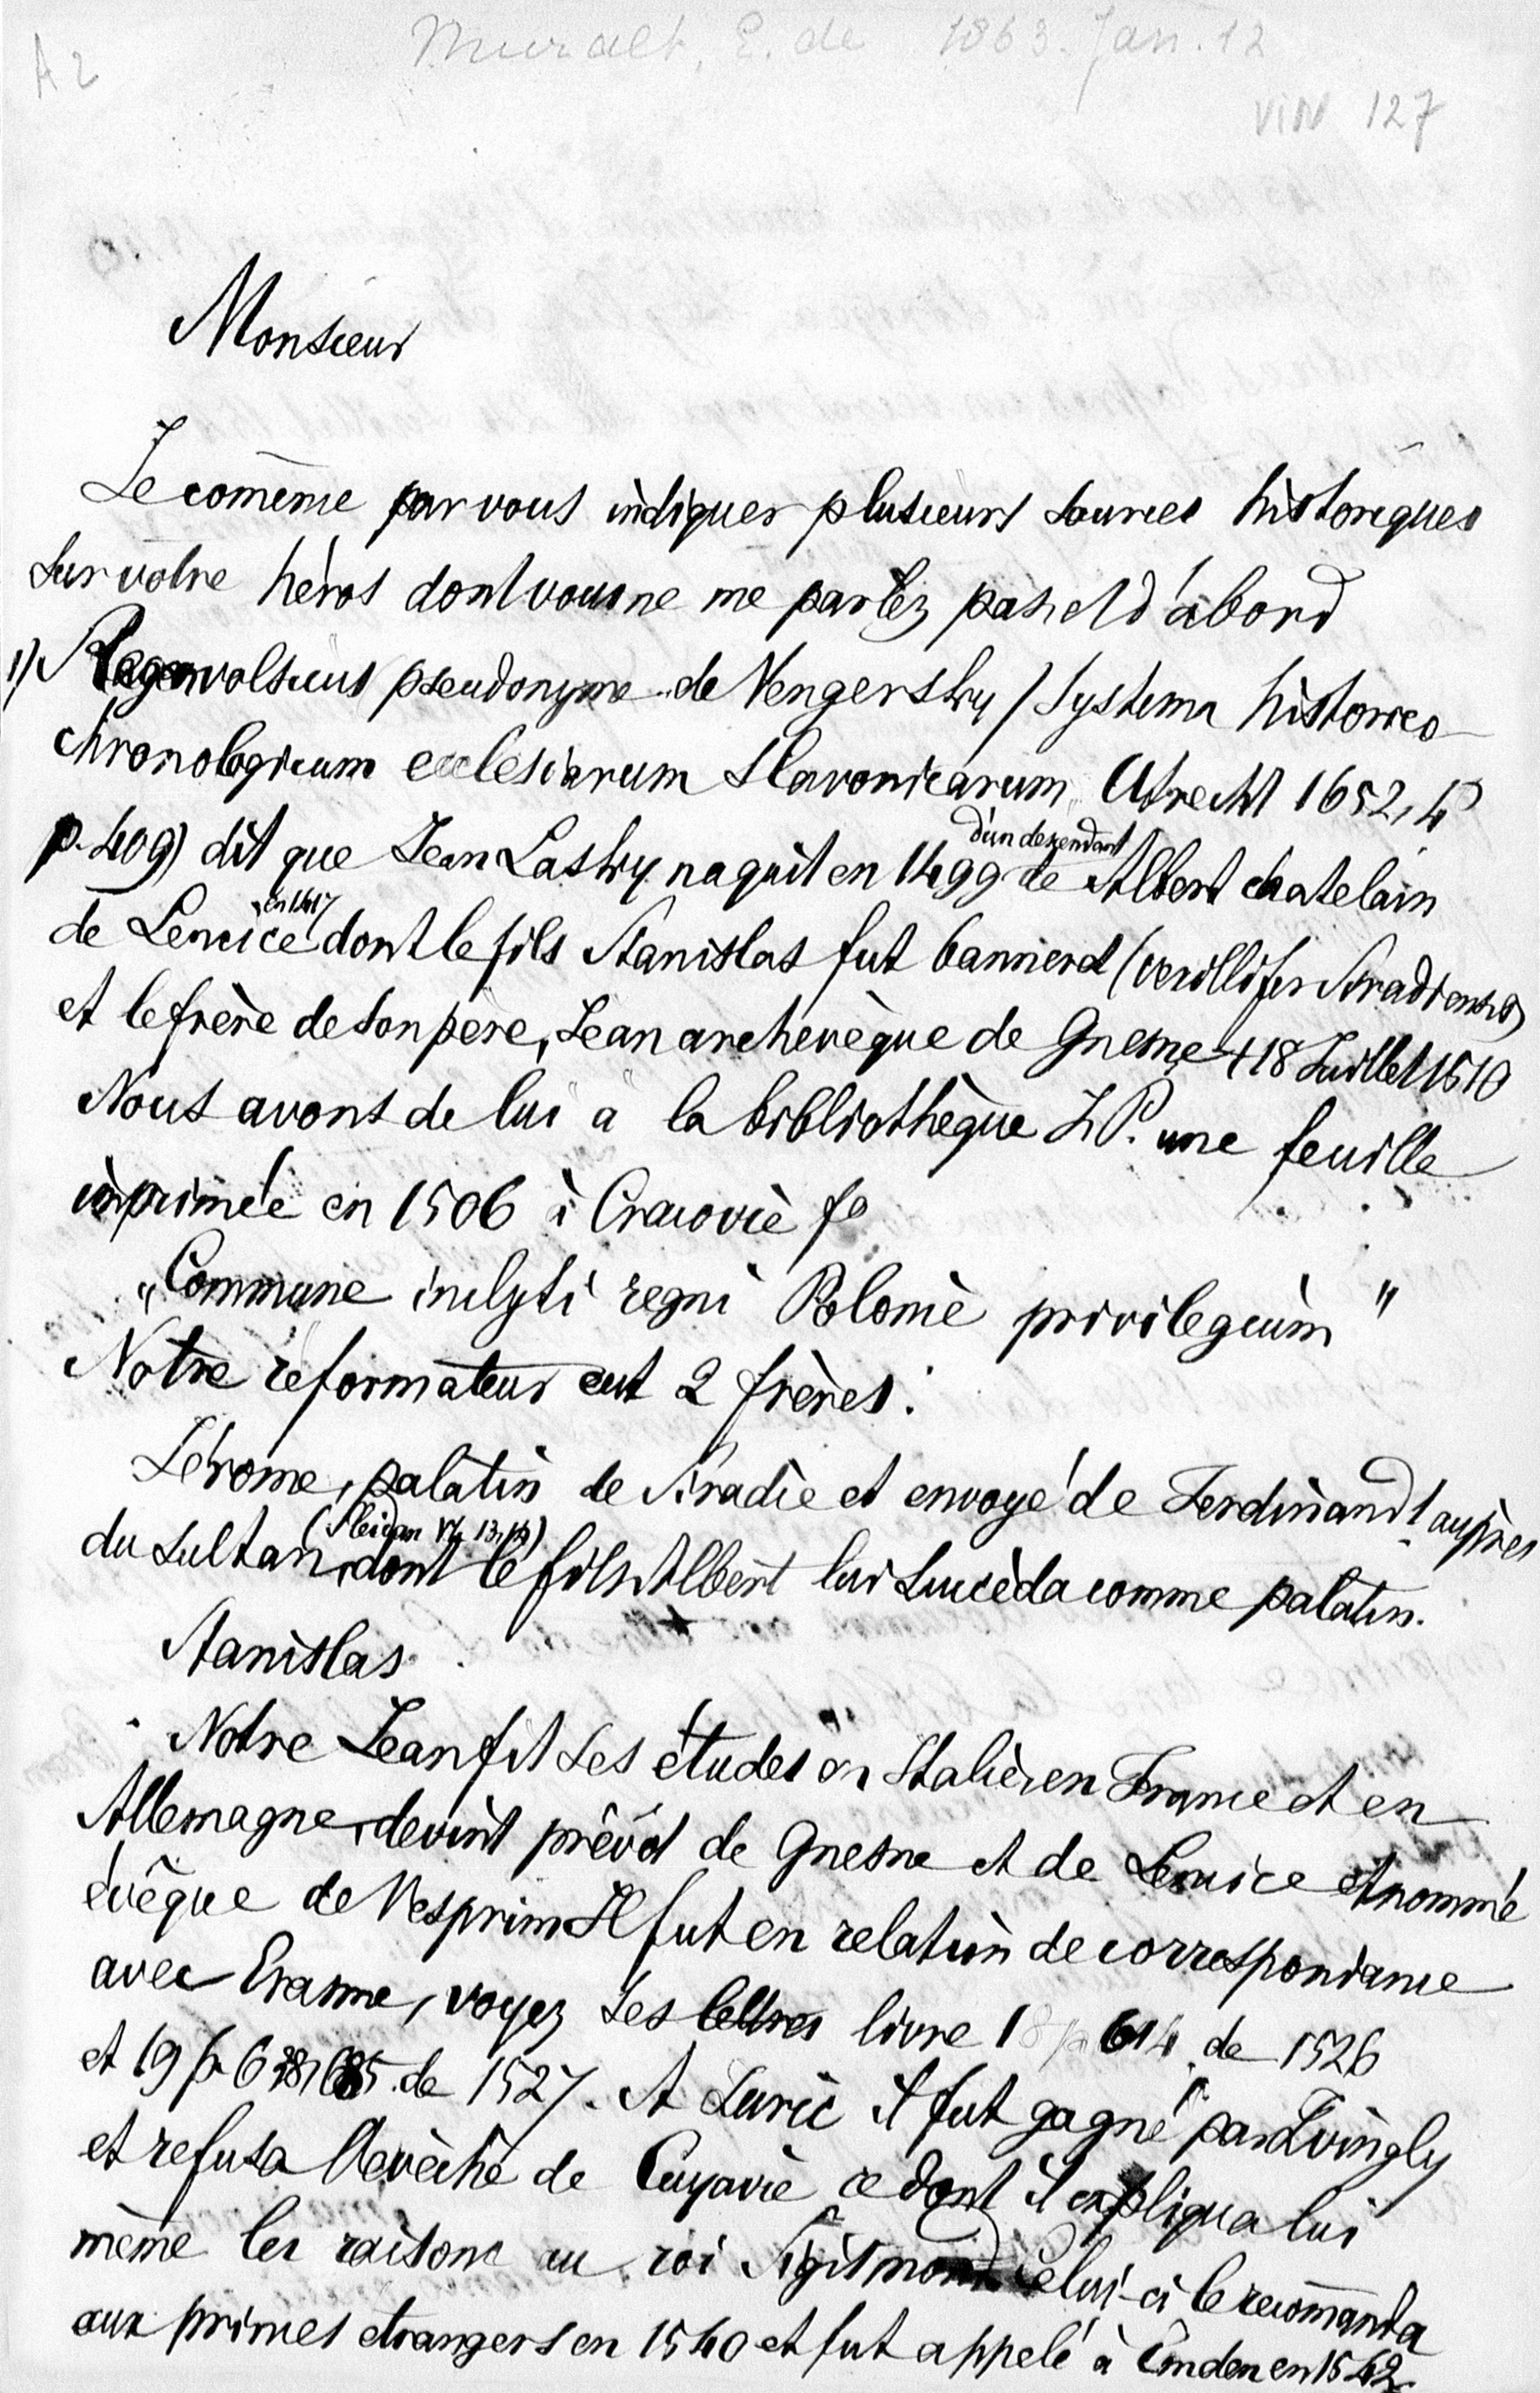 Muralt, E. de 1863. Jan. 12
A 2
VIN 127
Monsieur
Je com̄ence par vous indiquer plusieurs sources historiques
sur votre héros dont vous ne me parlez pas et d'abord
1) Regenvolscius pseudonyme de Vengersky / Systema historico
chronologicum ecclesiarum Slavonicarum Utrecht 1652, 4º
p. 409) dit que Jean Lasky naquit en 1499 de Albert chatelain
d'un dezendant
de Lencice dont le fils Stanislas fut banneret (vexillifer Siradiensis)
en 1417
et le frère de son père, Jean archevèque de Gnesne † 18 Juillet 1510
Nous avons de lui à la bibliothèque I. P. une feuille
imprimée en 1506 à Cracovie fº
„Commune inclyti regni Polonie privilegium"
Notre réformateur eut 2 frères:
Jérome, palatin de Siradie et envoyé de Ferdinand I auprès
du Sultan, dont le fils Albert lui succèda comme palatin.
(Sleidan
Stanislas
Notre Jean fit ses études en Italie, en France et en
Allemagne, devint prévôt de Gnesne et de Lencice et nommé
évêque de Vesprim Il fut en relation de correspondance
avec Erasme, voyez ses lettres livre 18 p 614. de 1526
et 19 p. de 1527. A Zuric il fut gagné par Zvingly
et refusa l'évèché de Cuyavie ce dont il expliqua lui
même les raisons au roi Sigismond Celui-ci le recom̄anda
aux princes etrangers en 1540 et fut appelé à Emden en 1542.